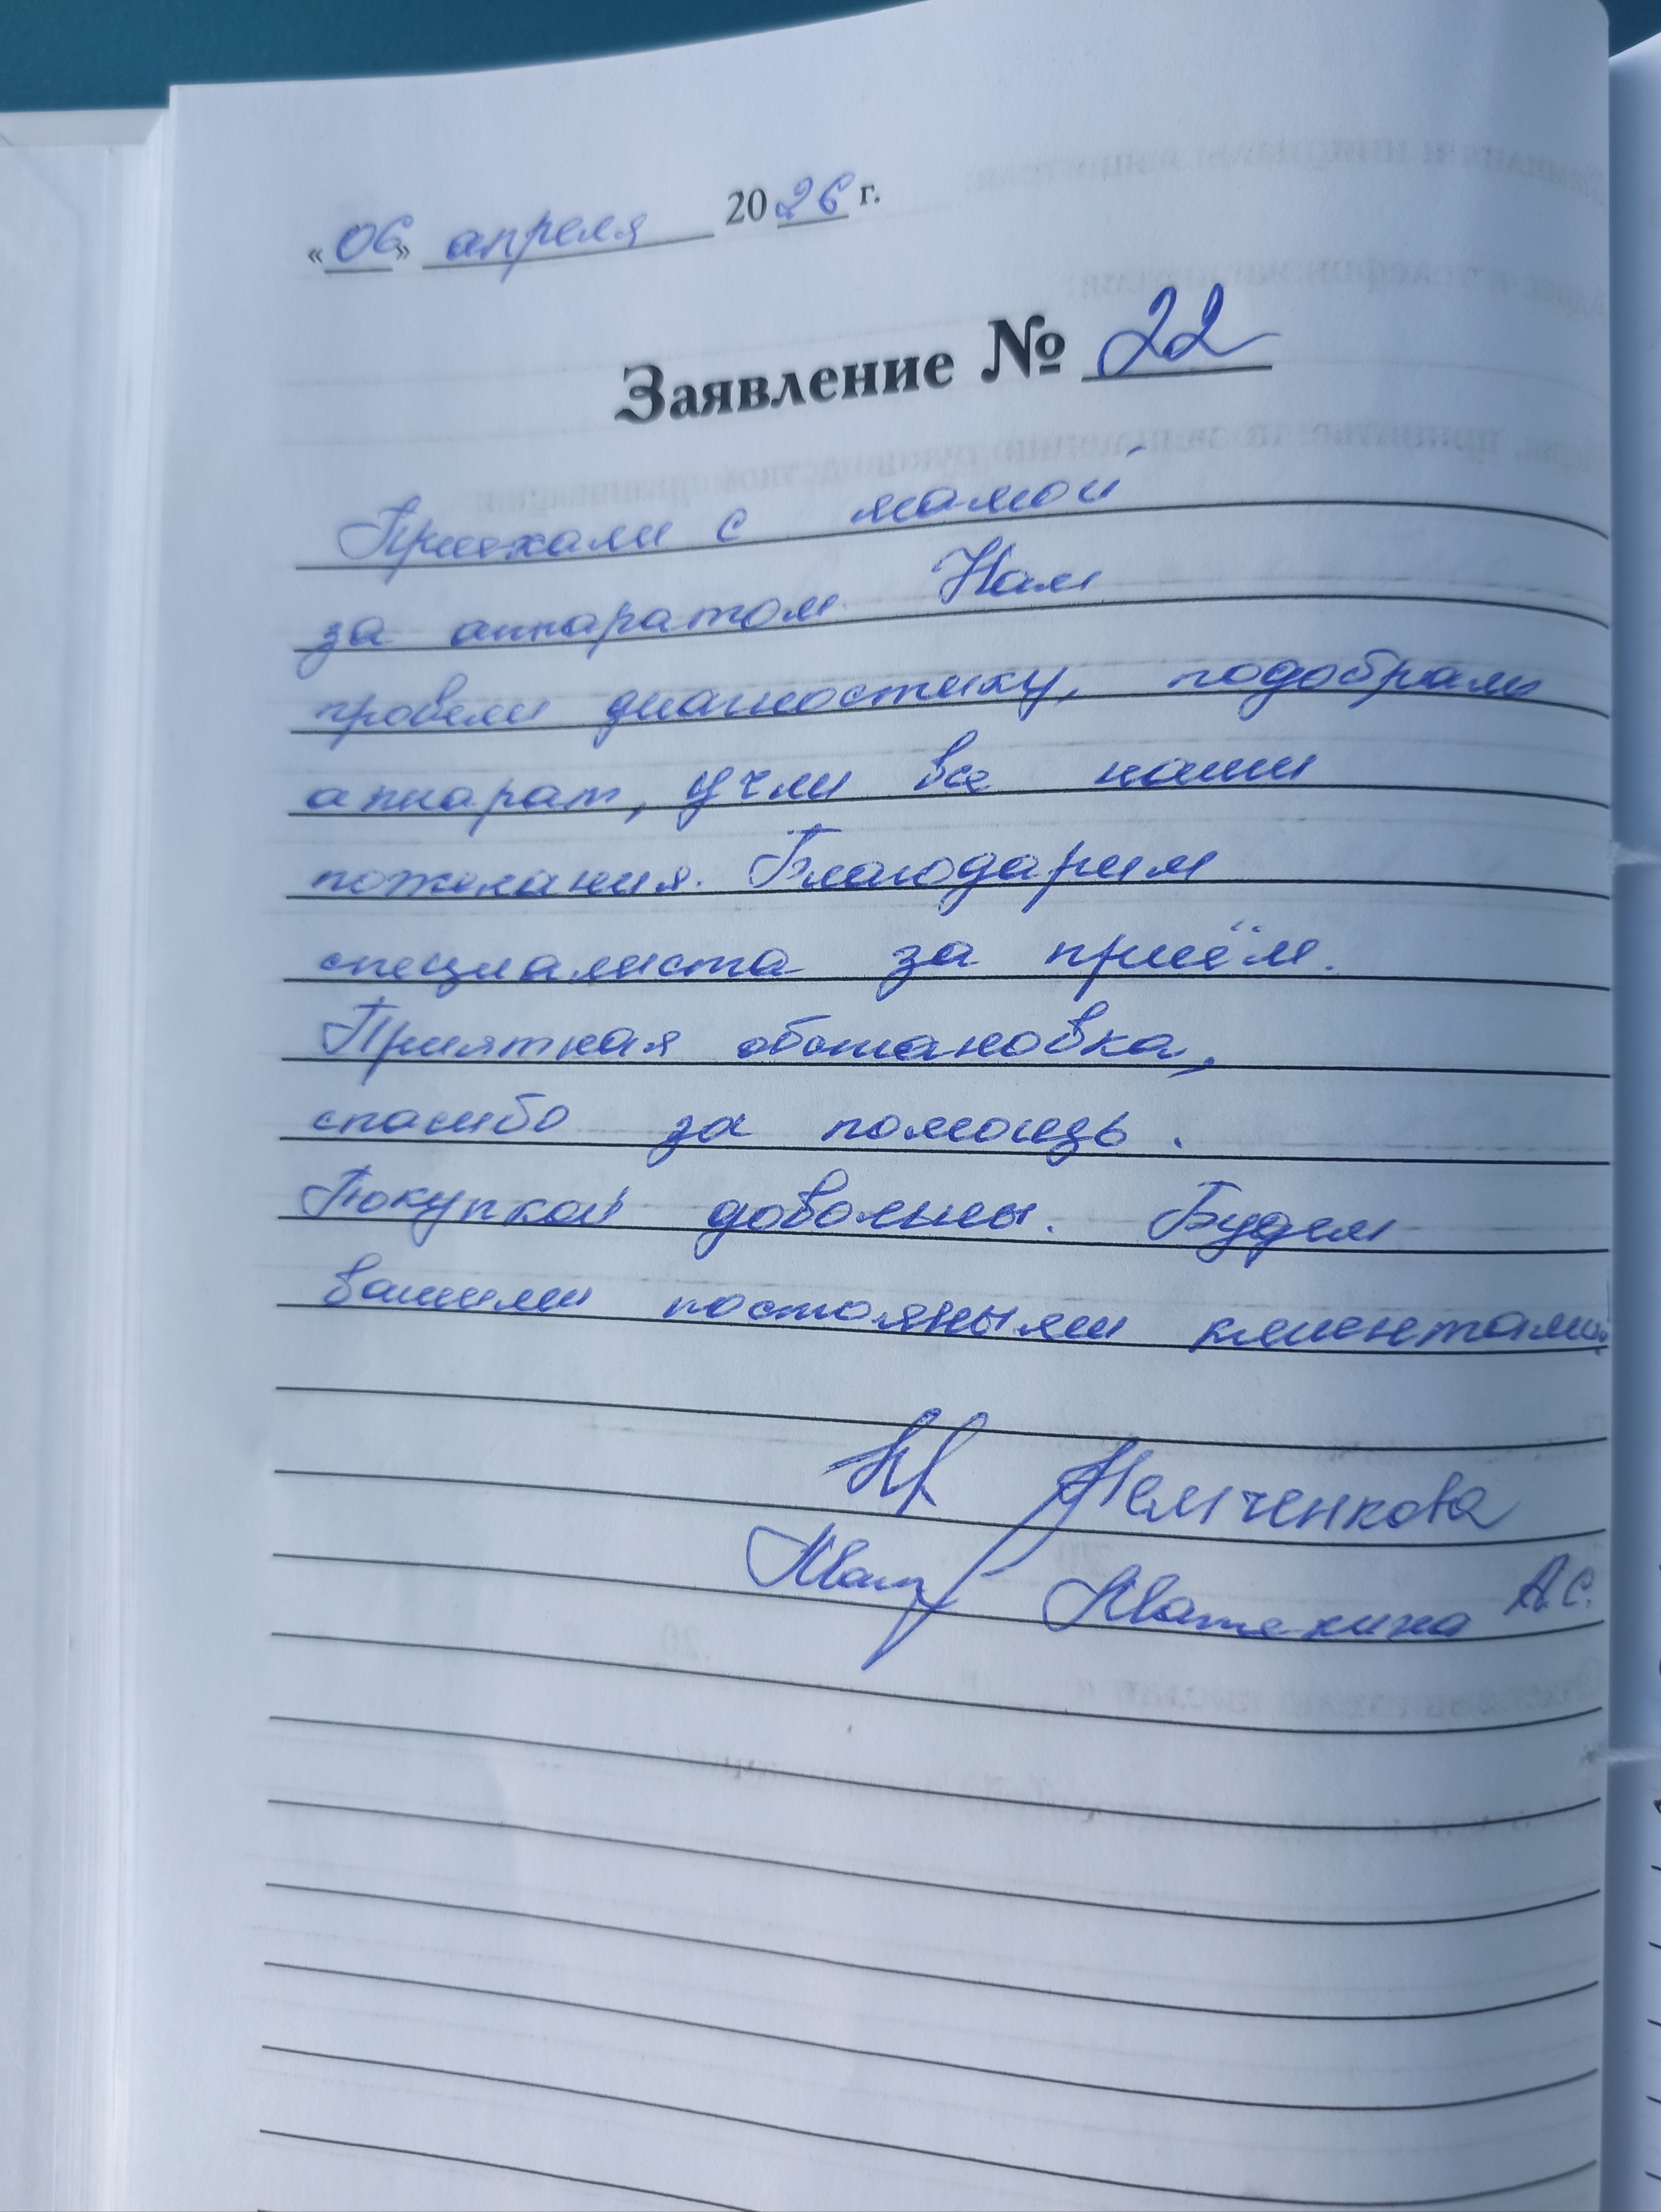 «06» апреля 2026 г.
Заявление № 22
Приехали с мамой
за аппаратом. Нам
провели диагностику, подобрали
аппарат, учли все наши
пожелания. Благодарим
специалиста за приём.
Приятная обстановка,
спасибо за помощь.
Покупкой довольны. Будем
вашими постояными клиентами
Немченкова
А.С.